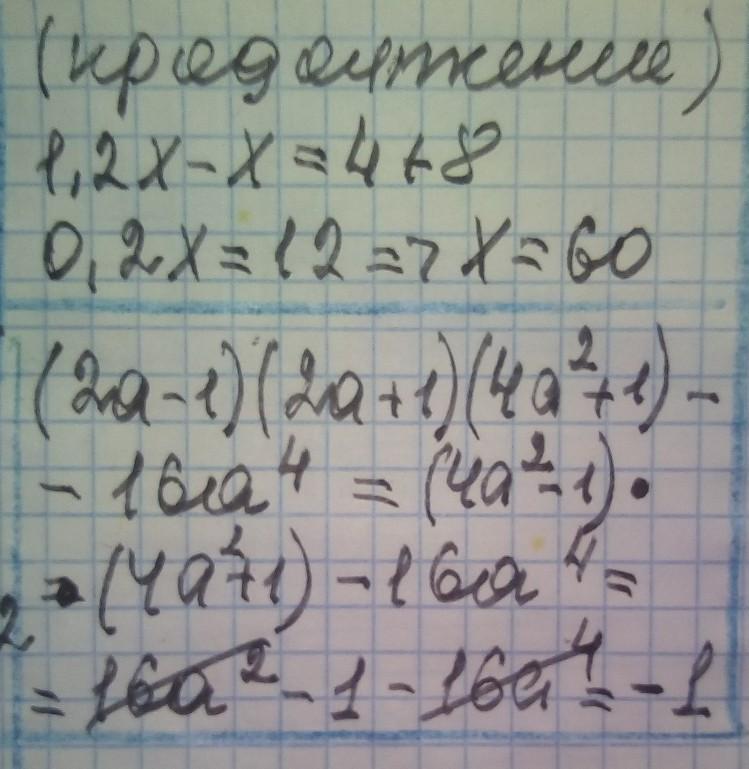 (продолжение)
1,2x - x = 4 + 8
0,2x = 12 => x = 60
(2a-1)(2a+1)(4a²+1) -
- 16a⁴ = (4a²-1) •
• (4a²+1) - 16a⁴ =
= 16a² - 1 - 16a⁴ = -1